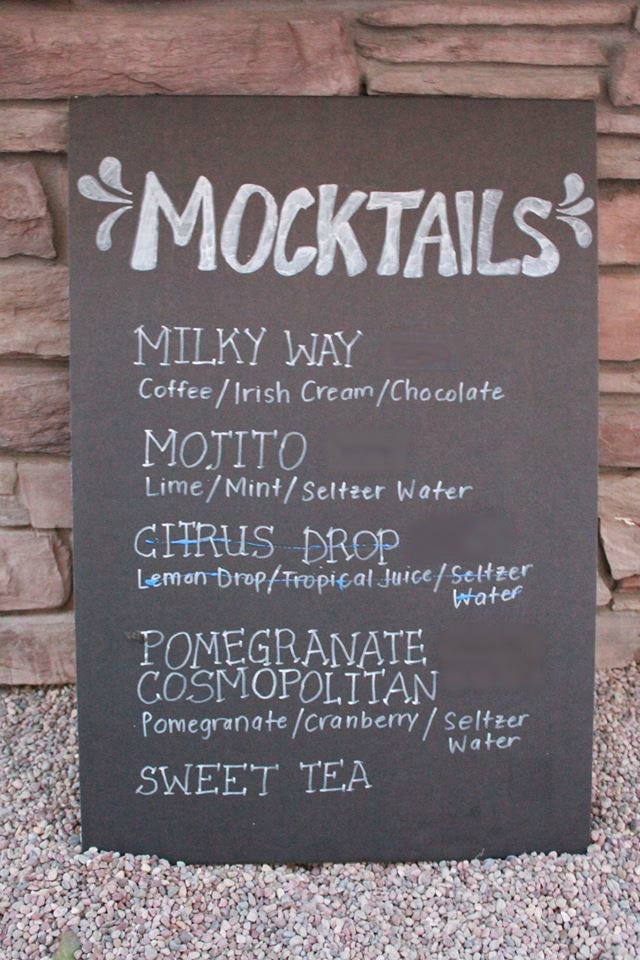 MOCKTAILS
MILKY WAY
Coffee/Irish Cream/Chocolate
MOJITO
Lime/Mint/Seltzer Water
CITRUS DROP
Lemon Drop/Tropical Juice/Seltzer
Water
POMEGRANATE
COSMOPOLITAN
Pomegranate/Cranberry/Seltzer
Water
SWEET TEA